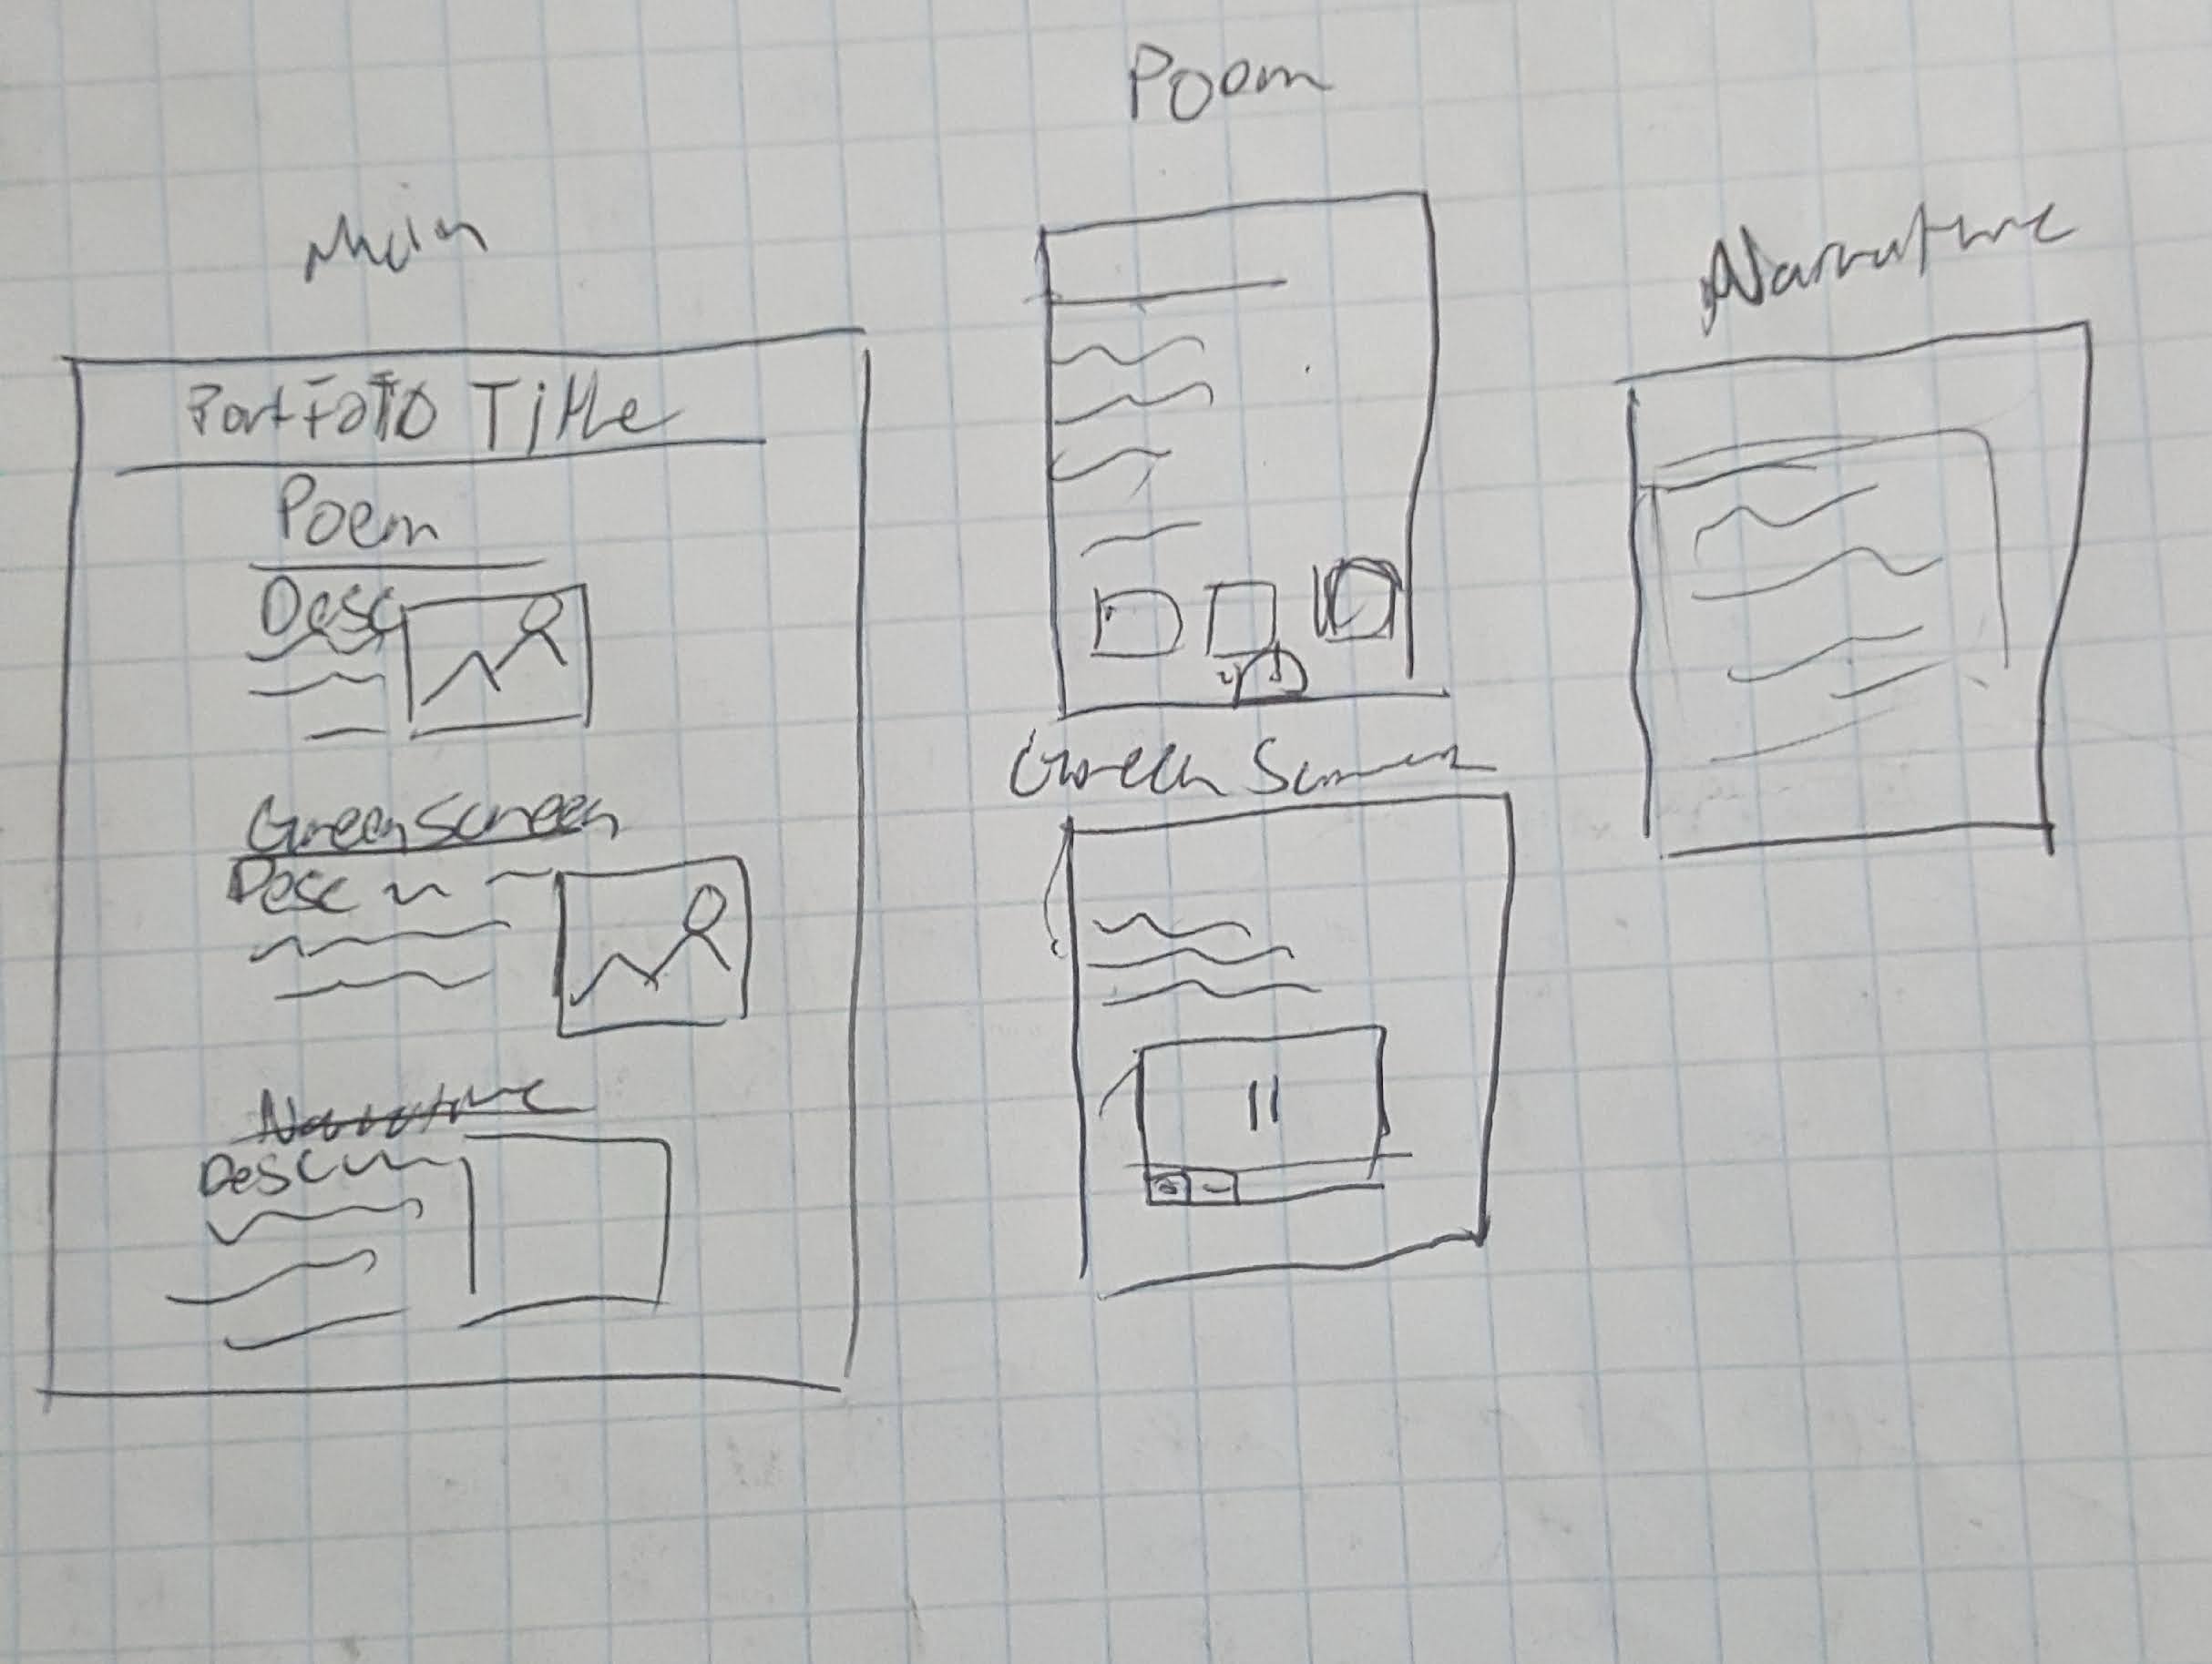 Main
Portfolio Title
Poem
Desc
Green Screen
Desc
Narrative
Desc
Poem
Green Screen
Narrative